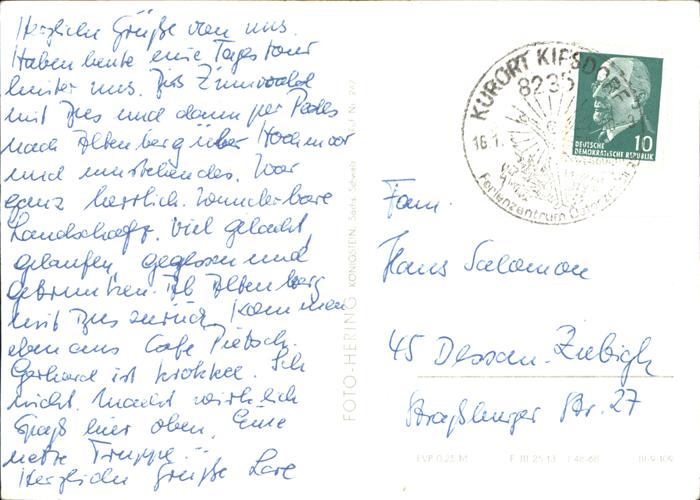 Herzliche Grüße von uns.
Haben heute eine Tagestour
hinter uns. Bis Zinnwald
mit Bus und dann per Pedes
nach Altenberg über Hochmoor
und umstehendes. War
ganz herrlich. Wunderbare
Landschaft. Viel gelacht,
gelaufen, gegessen und
getrunken. Ab Altenberg
mit Bus zurück, kommen
eben aus Cafe Pietsch.
Gerhard ist k.o. Ich
nicht. Macht wirklich
Spaß hier oben. Eine
nette Truppe.
Herzliche Grüße Lore
FOTO-HERING KÖNIGSTEIN, Sächs. Schweiz
KURORT KIPSDORF
8235
16.1.
Ferienzentrum Osterzgebirge
DEUTSCHE
DEMOKRATISCHE REPUBLIK
10
Fam.
Hans Salomon
45 Dessau-Ziebigk
Straßburger Str. 27
EVP 0,25 M